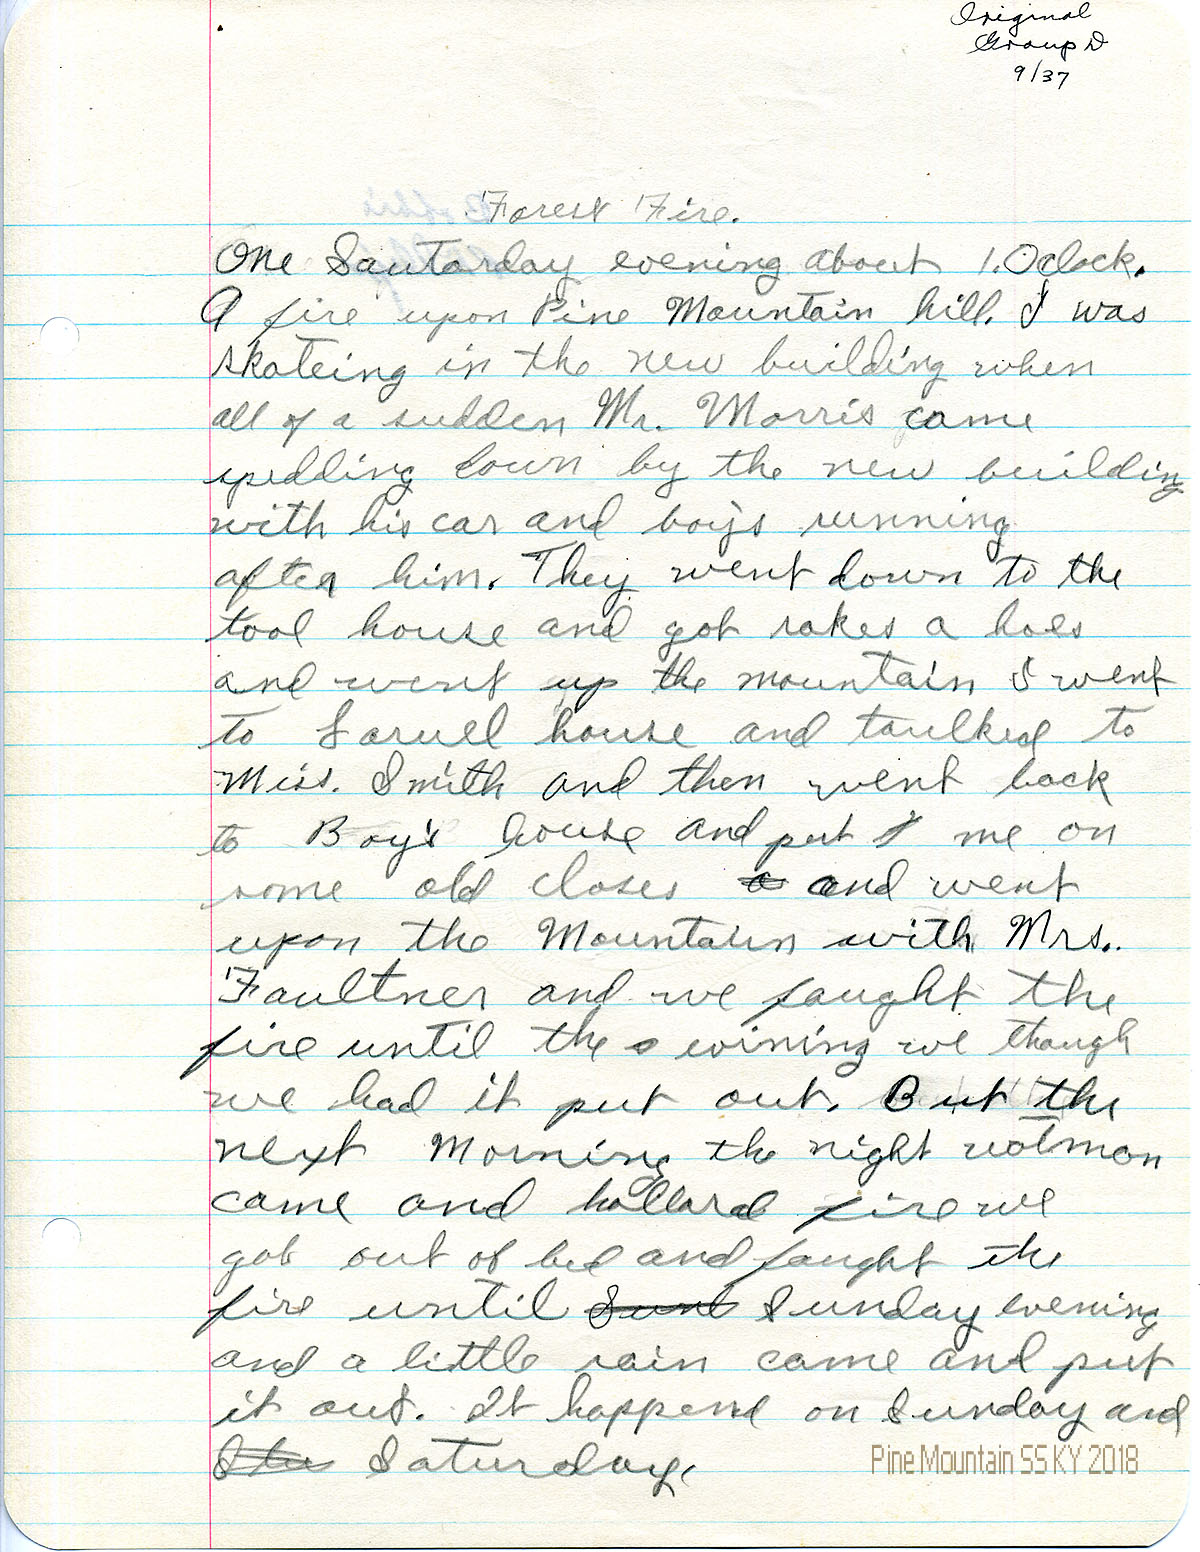 Original
Group D
9/37
Forest Fire.
One Sautarday evening about 1.Oclock.
A fire upon Pine Mountain hill. I was
skateing in the new building when
all of a sudden Mr. Morris came
spedding down by the new building
with his car and boys running
after him. They went down to the
tool house and got rakes a hoes
and went up the mountain I went
to Laruel house and taulked to
Miss. Smith and then went back
to Boy's house and put me on
some old closes and went
upon the Mountain with Mrs.
Faultner and we faught the
fire until the evining we though
we had it put out. But the
next Morning the night wotman
came and hollard fire we
got out of bed and faught the
fire until Sunday evening
and a little rain came and put
it out. It happend on Sunday and
Saturday.
Pine Mountain SS KY 2018